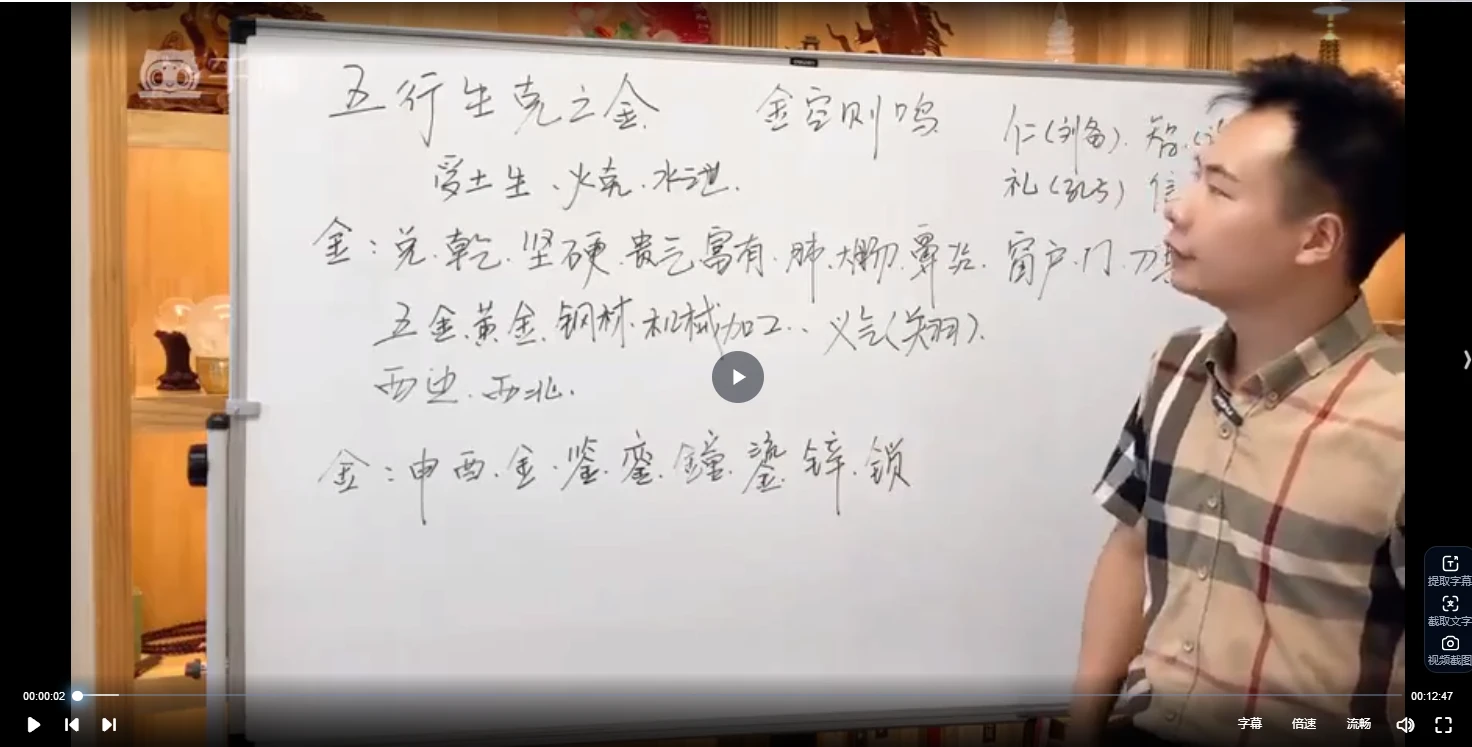 五行生克之金 金空则鸣
仁(刘备).智(
受土生、火克.水泄.
礼(孔子) 信
金:兑.乾.坚硬.贵气富有.肺.大肠.鼻炎.窗户.门.刀
五金.黄金.钢材.机械加工..义气(关羽).
西边.西北.
金:申酉.金.鉴.銮.鐘.鎏.锌.锁
提取字幕
截取文字
视频截图
00:00:02
00:12:47
字幕 倍速 流畅